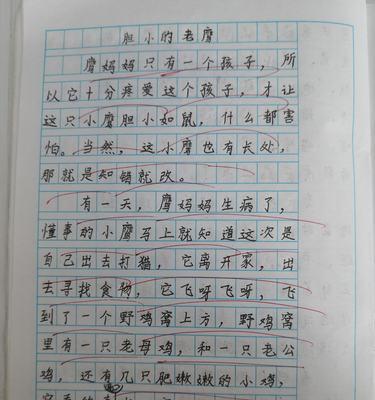 胆小的老鹰
鹰妈妈只有一个孩子，所
以它十分疼爱这个孩子，才让
这只小鹰胆小如鼠，什么都害
怕。当然，这小鹰也有长处，
那就是知错就改。
有一天，鹰妈妈生病了，
懂事的小鹰马上就知道这次是
自己出去打猫，它离开家，出
去寻找食物，它飞呀飞呀，飞
到了一个野鸡窝上方，野鸡窝
里有一只老母鸡，和一只老公
鸡，还有几只肥嫩嫩的小鸡，